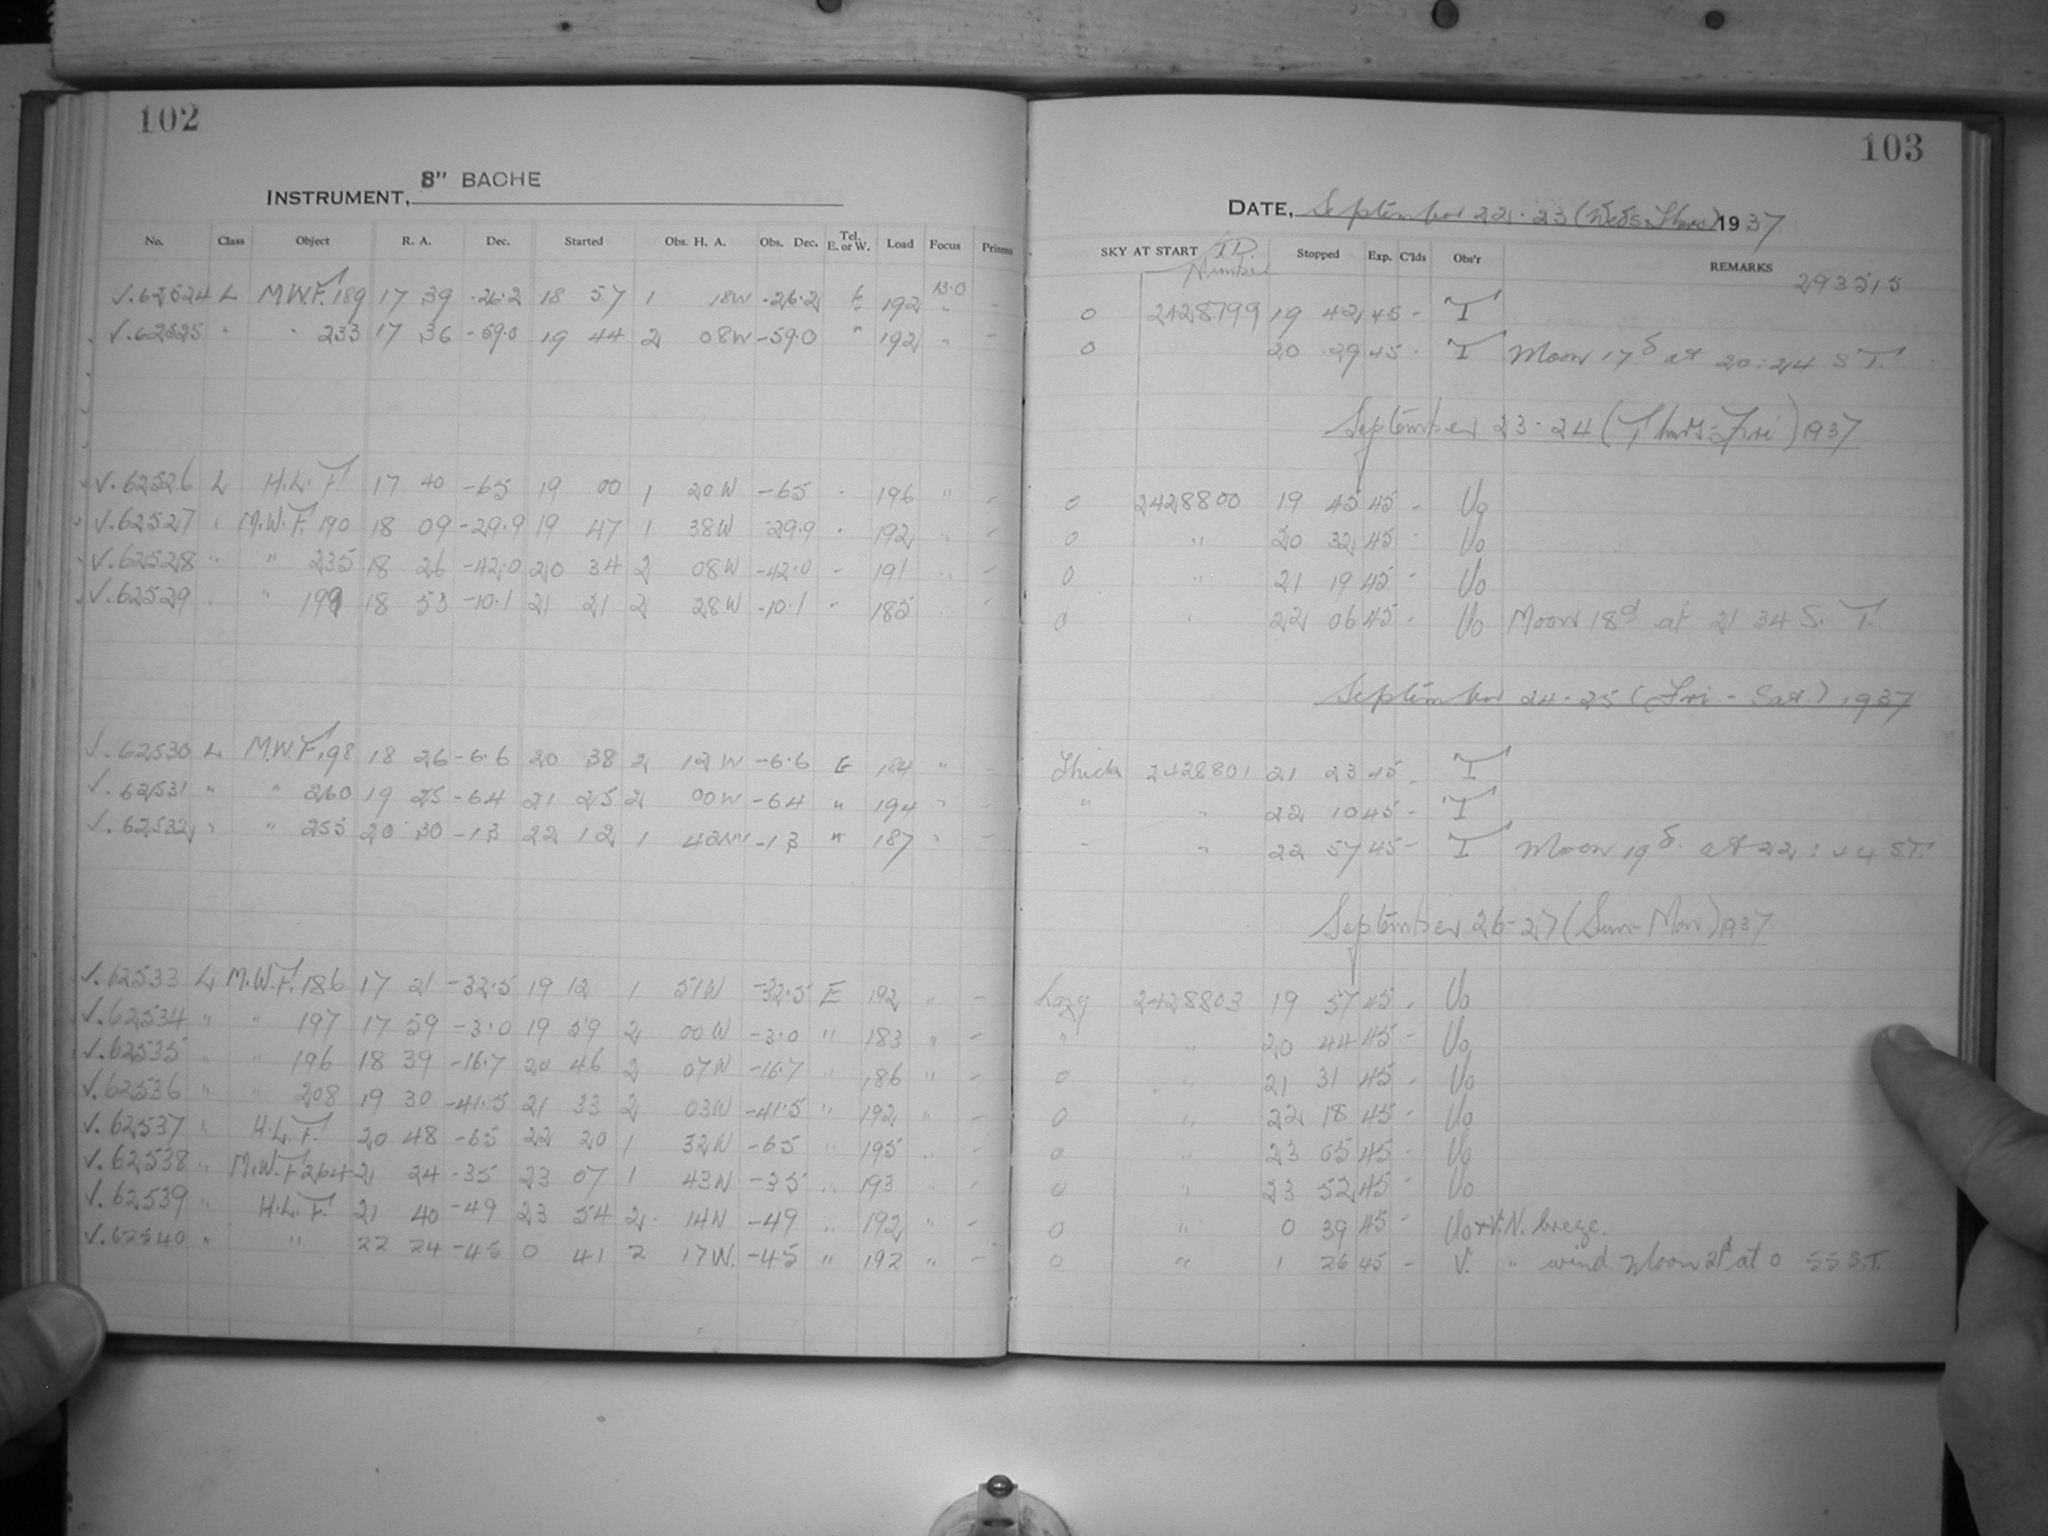 102
INSTRUMENT, 8" BACHE
No. Class Object R. A. Dec. Started Obs. H. A. Obs. Dec. Tel. E. or W. Load Focus Prisms
√.62524 L M.W.F. 189 17 39 -26.2 18 57 1 18W -26.2 E 192 13.0 -
√.62525 " " 233 17 36 -59.0 19 44 2 08W -59.0 " 192 " -
√.62526 L H.L.F. 17 40 -65 19 00 1 20W -65 196 " -
√.62527 " M.W.F. 190 18 09 -29.9 19 47 1 38W -29.9 192 " -
√.62528 " " 235 18 26 -42.0 20 34 2 08W -42.0 191 " -
√.62529 " " 199 18 53 -10.1 21 21 2 28W -10.1 185 " -
√.62530 L M.W.F. 198 18 26 -6.6 20 38 2 12W -6.6 E 184 " -
√.62531 " " 260 19 25 -64 21 25 2 00W -64 " 194 " -
√.62532 " " 255 20 30 -13 22 12 1 42W -13 " 187 " -
√.62533 L M.W.F. 186 17 21 -32.5 19 12 1 51W -32.5 E 192 " -
√.62534 " " 197 17 59 -3.0 19 59 2 00W -3.0 " 183 " -
√.62535 " " 196 18 39 -16.7 20 46 2 07W -16.7 " 186 " -
√.62536 " " 208 19 30 -41.5 21 33 2 03W -41.5 " 192 " -
√.62537 " H.L.F. 20 48 -65 22 20 1 32W -65 " 195 " -
√.62538 " M.W.F 264 21 24 -35 23 07 1 43W -35 " 193 " -
√.62539 " H.L.F. 21 40 -49 23 54 2 14W -49 " 192 " -
√.62540 " " 22 24 -45 0 41 2 17W. -45 " 192 " -
103
DATE, September 22-23 (Weds-Thurs) 1937
SKY AT START J.D. Number Stopped Exp. C'lds Obs'r REMARKS
293515
0 2428799 19 42 45 - T
0 20 29 45 - T Moon 17d at 20:24 S.T.
September 23-24 (Thurs-Fri) 1937
0 2428800 19 45 45 - Uo
0 " 20 32 45 - Uo
0 " 21 19 45 - Uo
0 " 22 06 45 - Uo Moon 18d at 21 34 S. T.
September 24-25 (Fri - Sat.) 1937
Thick 2428801 21 23 45 - T
" " 22 10 45 - T
" " 22 57 45 - T Moon 19d. at 22: S.T.
September 26-27 (Sun-Mon) 1937
hazy 2428803 19 57 45 - Uo
" " 20 44 45 - Uo
0 " 21 31 45 - Uo
0 " 22 18 45 - Uo
0 " 23 05 45 - Uo
0 " 23 52 45 - Uo
0 " 0 39 45 - Uo+V. N. breeze.
0 " 1 26 45 - V. " wind. Moon 21d at 0 55 S.T.